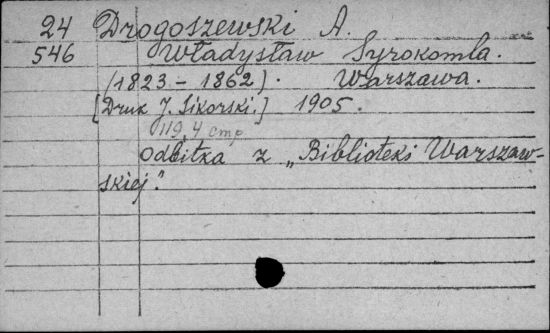 24 Drogoszewski A.
546 Władysław Syrokomla.
(1823 - 1862). Warszawa.
[Druk J. Sikorski.] 1905.
119, 4 стр
Odbitka z „Biblioteki Warszaw-
skiej."